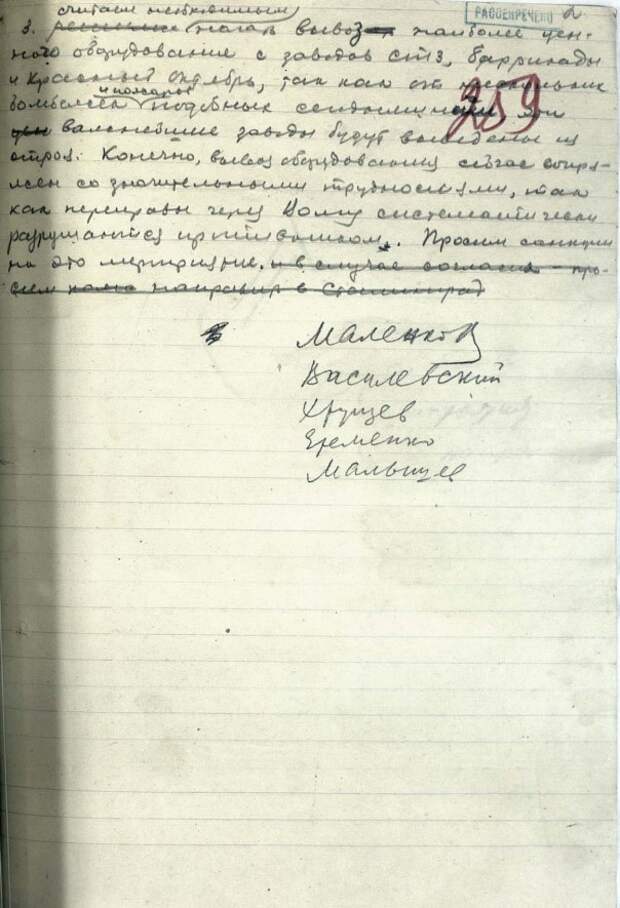 РАССЕКРЕЧЕНО
2
259
считаем необходимым
3. решение начать вывоз наиболее цен-
ного оборудование с заводов СТЗ, Баррикады
и Красный Октябрь, так как от нескольких
и пожаров
бомбежек подобных сегодняшней эти
важнейшие заводы будут выведены из
строя. Конечно, вывоз оборудования сейчас сопря-
жен со значительными трудностями, так
как переправы через Волгу систематически
разрушаются противником. Просим санкции
на это мероприятие. и в случае согласия – про-
сим направить в Сталинград
Маленков
Василевский
Хрущев
Еременко
Малышев